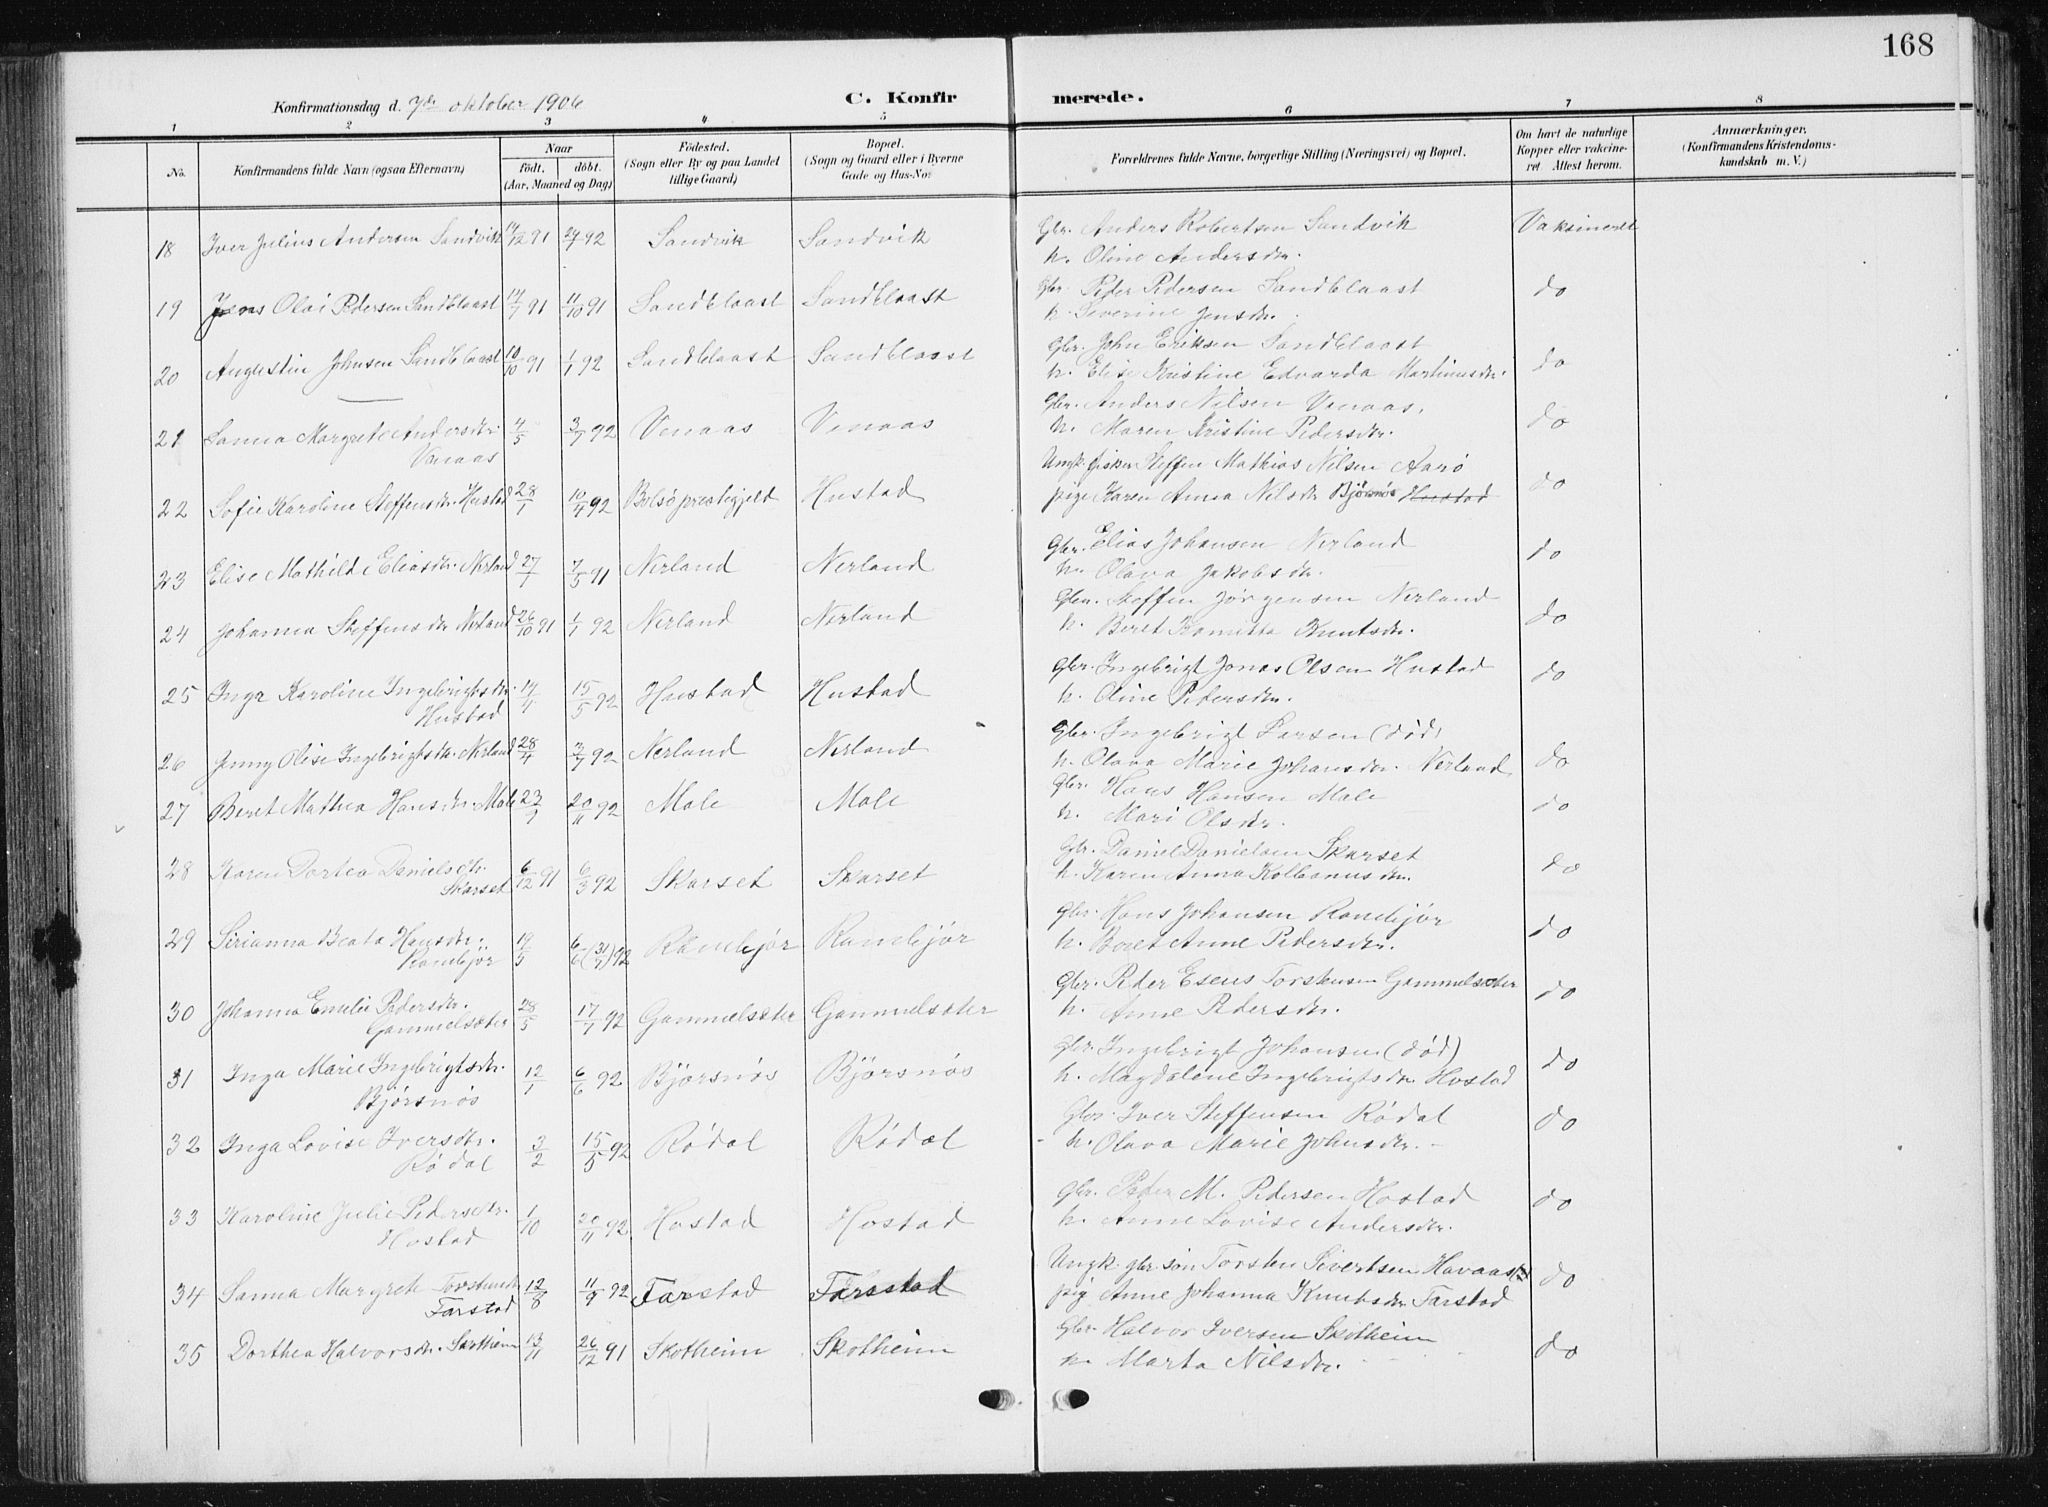 168
Konfirmationsdag d. 7de oktober 1906
C. Konfirmerede.
1 2 3 4 5 6 7 8
No.
Konfirmandens fulde Navn (ogsaa Efternavn)
Naar
født. døbt.
(Aar, Maaned og Dag)
Fødested.
(Sogn eller By og paa Landet
tillige Gaard)
Bopæl.
(Sogn og Gaard eller i Byerne
Gade og Hus-No.
Forældrenes fulde Navne, borgerlige Stilling (Næringsvei) og Bopæl.
Om havt de naturlige
Kopper eller vakcine-
ret Attest herom.
Anmærkninger.
(Konfirmandens Kristendoms-
kundskab m. V.)
18 Iver Julius Andersen Sandvik 14/12 91 24/1 92 Sandvik Sandvik Gbr. Anders Robertsen Sandvik Vaksineret
h. Oline Andersdtr.
19 Jens Olai Pedersen Sandblaast 14/7 91 11/10 91 Sandblaast Sandblaast Gbr. Peder Pedersen Sandblaast do
h. Severine Jensdtr.
20 Augustin Johnsen Sandblaast 10/10 91 1/1 92 Sandblaast Sandblaast Gbr. John Eriksen Sandblaast do
h. Elise Kristine Edvarda Martinusdtr.
21 Sanna Margrete Andersdtr. 4/5 3/7 92 Venaas Venaas Gbr. Anders Nilsen Venaas, do
Venaas h. Maren Kristine Pedersdtr.
22 Sofie Karoline Steffensdtr. Hustad 28/1 10/4 92 Bolsø prestegjeld Hustad Ungk. fisker Steffen Mathias Nilsen Aarø do
pige Karen Anna Nilsdtr Bjørsnøs Hustad
23 Elise Mathild Eliasdtr. Nerland 27/1 7/5 91 Nerland Nerland Gbr. Elias Johansen Nerland do
h. Olava Jakobsdtr.
24 Johanna Steffensdtr Nerland 26/10 91 1/1 92 Nerland Nerland Gbr. Steffen Jørgensen Nerland do
h. Beret Knutsdtr.
25 Inga Karoline Ingebrigtsdtr. 14/4 15/5 92 Hustad Hustad Gbr. Ingebrigt Jonas Olsen Hustad do
Hustad h. Oline Pedersdtr.
26 Jenny Olise Ingebrigtsdtr. Nerland 28/4 3/7 92 Nerland Nerland Gbr. Ingebrigt Larsen (død) do
h. Olava Marie Johansdtr. Nerland
27 Beret Mathea Hansdtr. Male 23/9 20/11 92 Male Male Gbr. Hans Hansen Male do
h. Mari Olsdtr.
28 Karen Dortea Danielsdtr. 6/12 91 6/3 92 Skarset Skarset Gbr. Daniel Danielsen Skarset do
Skarset h. Karen Anna Kolbeinusdtr.
29 Sirianna Beata Hansdtr. 19/5 6/6 (31/7) 92 Ranhejør Ranhejør Gbr. Hans Johansen Ranhejør do
Ranhejør h. Beret Anne Pedersdtr.
30 Johanna Emelie Pedersdtr. 28/5 17/7 92 Gammelsæter Gammelsæter Gbr. Peder Esens Torstensen Gammelsæter do
Gammelsæter h. Anne Pedersdtr.
31 Inga Marie Ingebrigtsdtr. 12/1 6/6 92 Bjørsnøs Bjørsnøs Gbr. Ingebrigt Johansen (død) do
Bjørsnøs h. Magdalene Ingebrigtsdtr Hostad
32 Inga Lovise Iversdtr. 3/2 15/5 92 Rødal Rødal Gbr. Iver Steffensen Rødal do
Rødal h. Olava Marie Johnsdtr.
33 Karoline Julie Pedersdtr. 1/10 20/11 92 Hostad Hostad Gbr. Peder M. Pedersen Hostad do
Hostad h. Anne Lovise Andersdtr.
34 Sanna Margrete Torstensdtr 12/8 11/9 92 Farstad Farstad Ungk. gbr. søn Torsten Sivertsen Havaas do
Farstad pig. Anne Johanna Knutsdtr Farstad
35 Dorthea Halvorsdtr. Skotheim 13/11 26/12 91 Skotheim Skotheim Gbr. Halvor Iversen Skotheim do
h. Marta Nilsdtr.